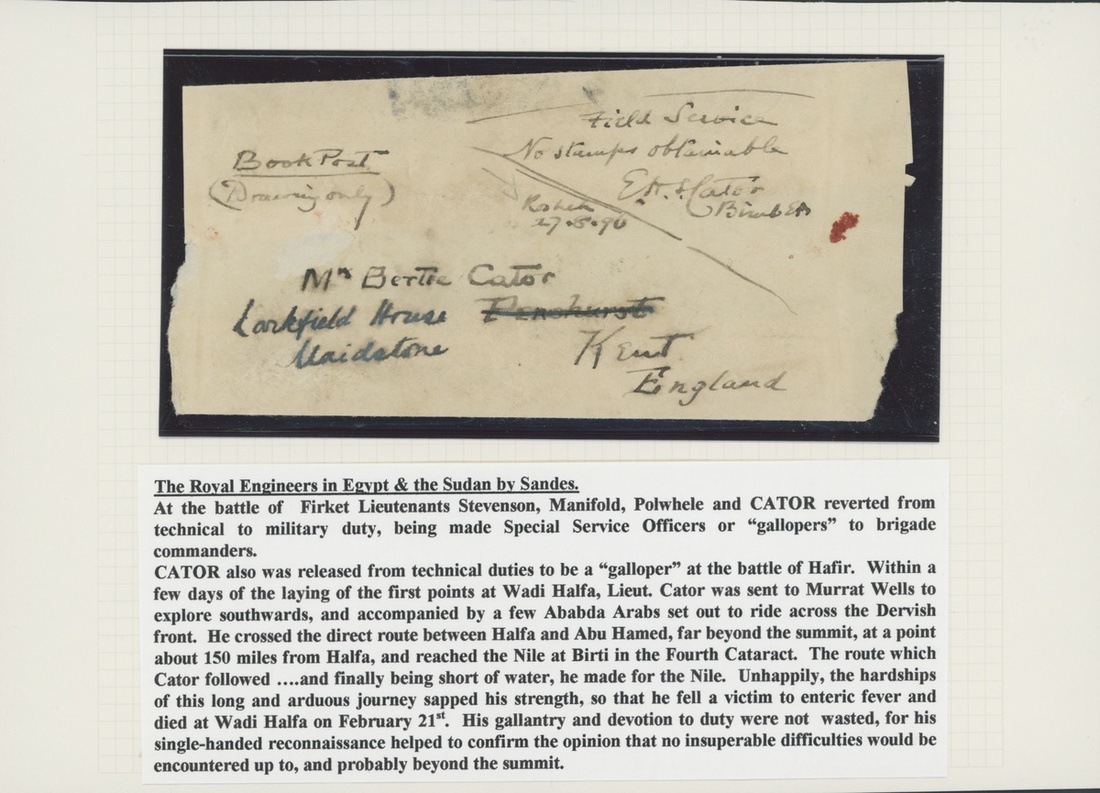 Field Service
No stamps obtainable
Book Post
(Drawing only)
E.A.S. Cator
Kosheh
27.8.96
Mr Bertie Cator
Larkfield House Penshurst
Maidstone
Kent
England
The Royal Engineers in Egypt & the Sudan by Sandes.
At the battle of Firket Lieutenants Stevenson, Manifold, Polwhele and CATOR reverted from
technical to military duty, being made Special Service Officers or “gallopers” to brigade
commanders.
CATOR also was released from technical duties to be a “galloper” at the battle of Hafir. Within a
few days of the laying of the first points at Wadi Halfa, Lieut. Cator was sent to Murrat Wells to
explore southwards, and accompanied by a few Ababda Arabs set out to ride across the Dervish
front. He crossed the direct route between Halfa and Abu Hamed, far beyond the summit, at a point
about 150 miles from Halfa, and reached the Nile at Birti in the Fourth Cataract. The route which
Cator followed ….and finally being short of water, he made for the Nile. Unhappily, the hardships
of this long and arduous journey sapped his strength, so that he fell a victim to enteric fever and
died at Wadi Halfa on February 21st. His gallantry and devotion to duty were not wasted, for his
single-handed reconnaissance helped to confirm the opinion that no insuperable difficulties would be
encountered up to, and probably beyond the summit.